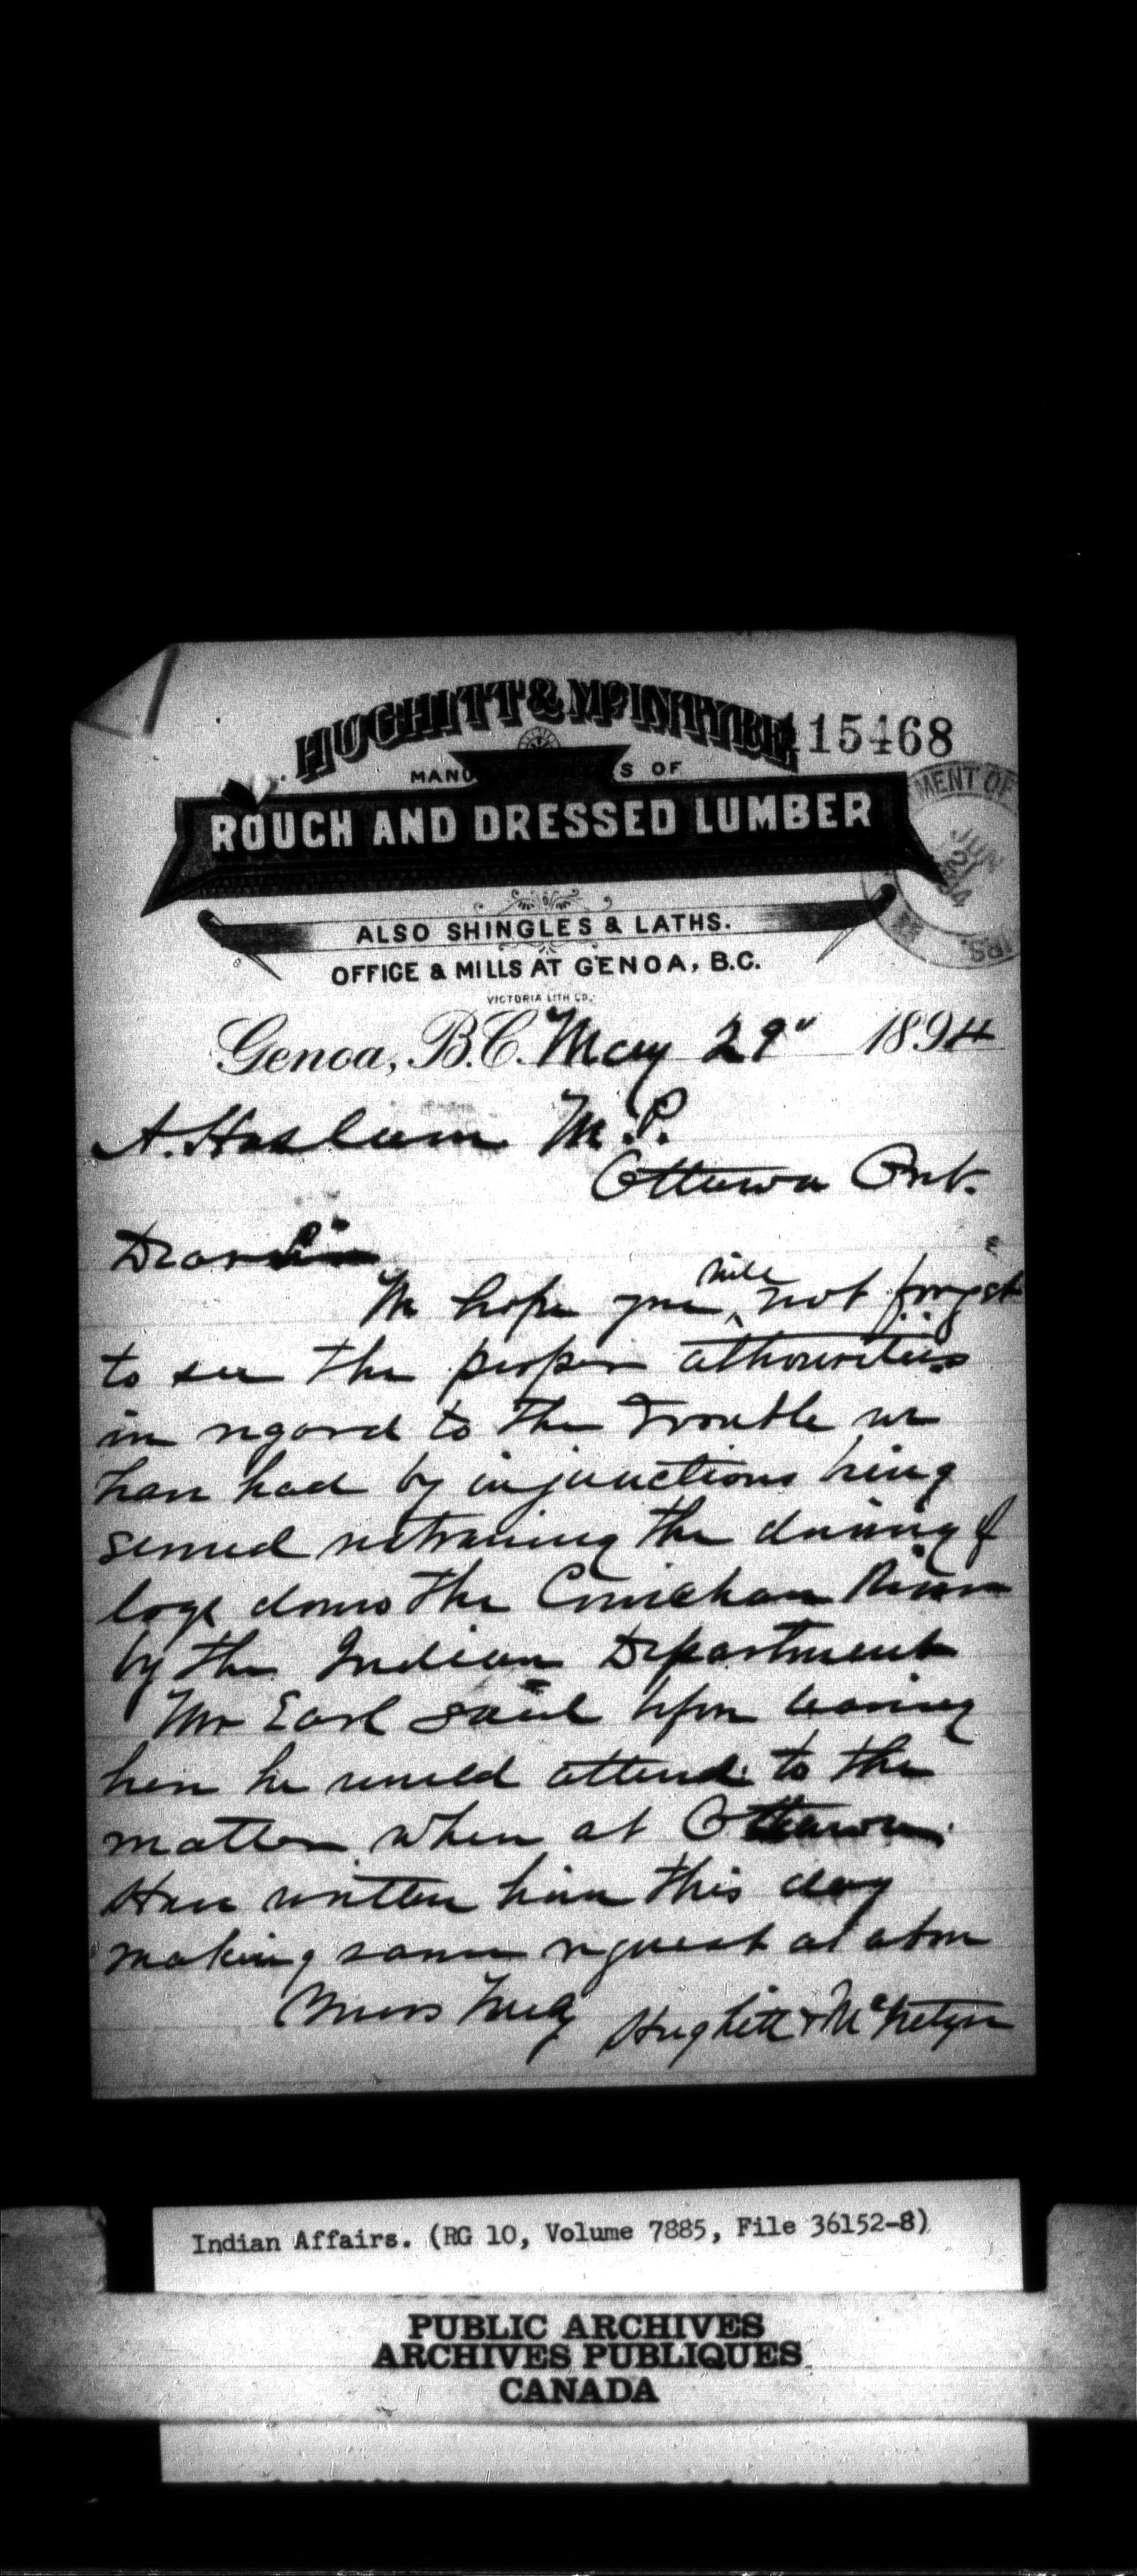 HUGHITT & McINTYRE
115468
MANU S OF
ROUGH AND DRESSED LUMBER
MENT OF
JUN
ALSO SHINGLES & LATHS.
OFFICE & MILLS AT GENOA, B.C.
VICTORIA LITH CO.
Genoa, B.C. May 29" 1894
A. Haslam M.P.
Ottawa Ont.
Dear Sir
We hope you will not forget
to see the proper athourities
in regard to the trouble we
have had by injunctions being
served restraining the driving of
logs down the Cowichan River
by the Indian Department
Mr Earl said upon leaving
here he would attend to the
matter when at Ottawa.
Have written him this day
making same request as above
Yours Truly Hughitt & McIntyre
Indian Affairs. (RG 10, Volume 7885, File 36152-8)
PUBLIC ARCHIVES
ARCHIVES PUBLIQUES
CANADA